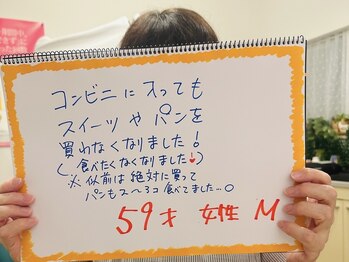 コンビニに入っても
スイーツやパンを
買わなくなりました!
(食べたくなくなりました↓)
※以前は絶対に買って
パンも2〜3コ食べてました…。
59才 女性 M